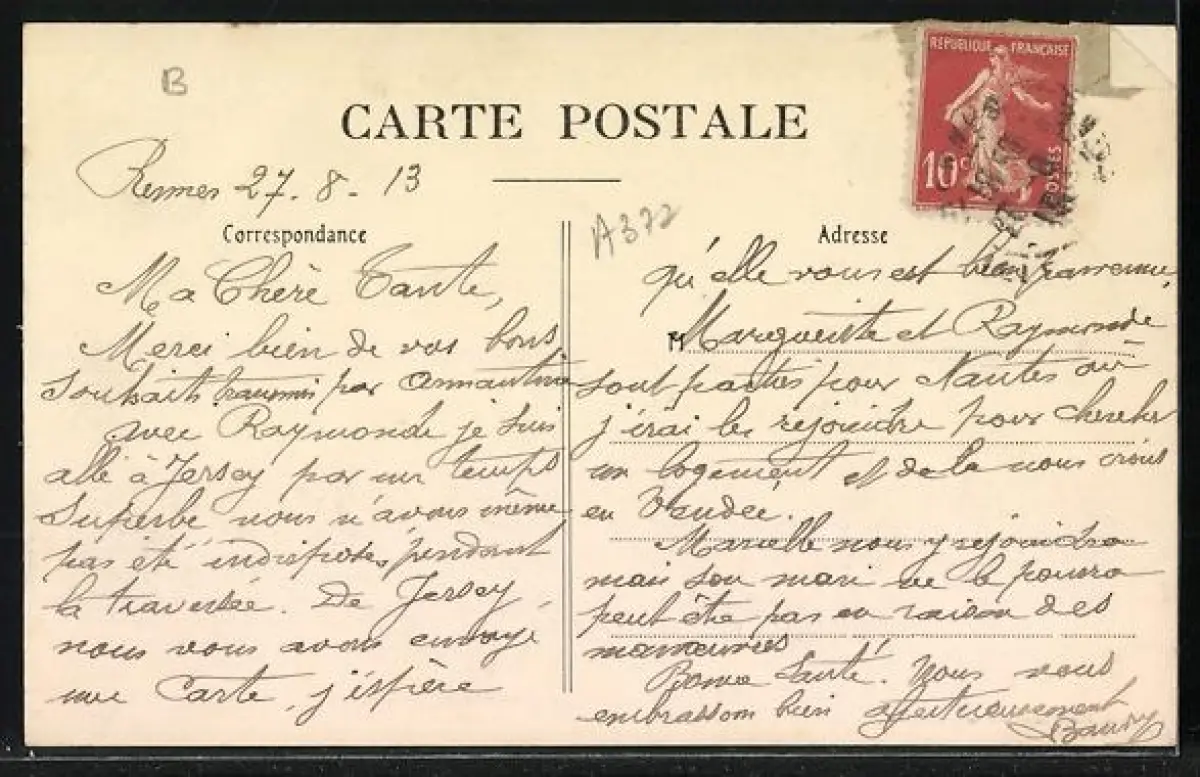 B
CARTE POSTALE
REPUBLIQUE FRANÇAISE
10c
POSTES
Rennes 27. 8. 13
A372
Correspondance
Ma Chère Tante,
Merci bien de vos bons
souhaits transmis par Armantine
avec Raymonde je suis
allé à Jersey par un temps
superbe nous n'avons même
pas été indisposés pendant
la traversée. De Jersey,
nous vous avons envoyé
une carte, j'espère
Adresse
qu'elle vous est bien parvenue,
M
Marguerite et Raymonde
sont parties pour Nantes où
j'irai les rejoindre pour chercher
un logement et de là nous irons
en Vendée.
Marielle nous y rejoindra
mais son mari ne le pourra
peut être pas en raison des
manœuvres
Bonne Santé. Nous vous
embrassons bien affectueusement
Baudry